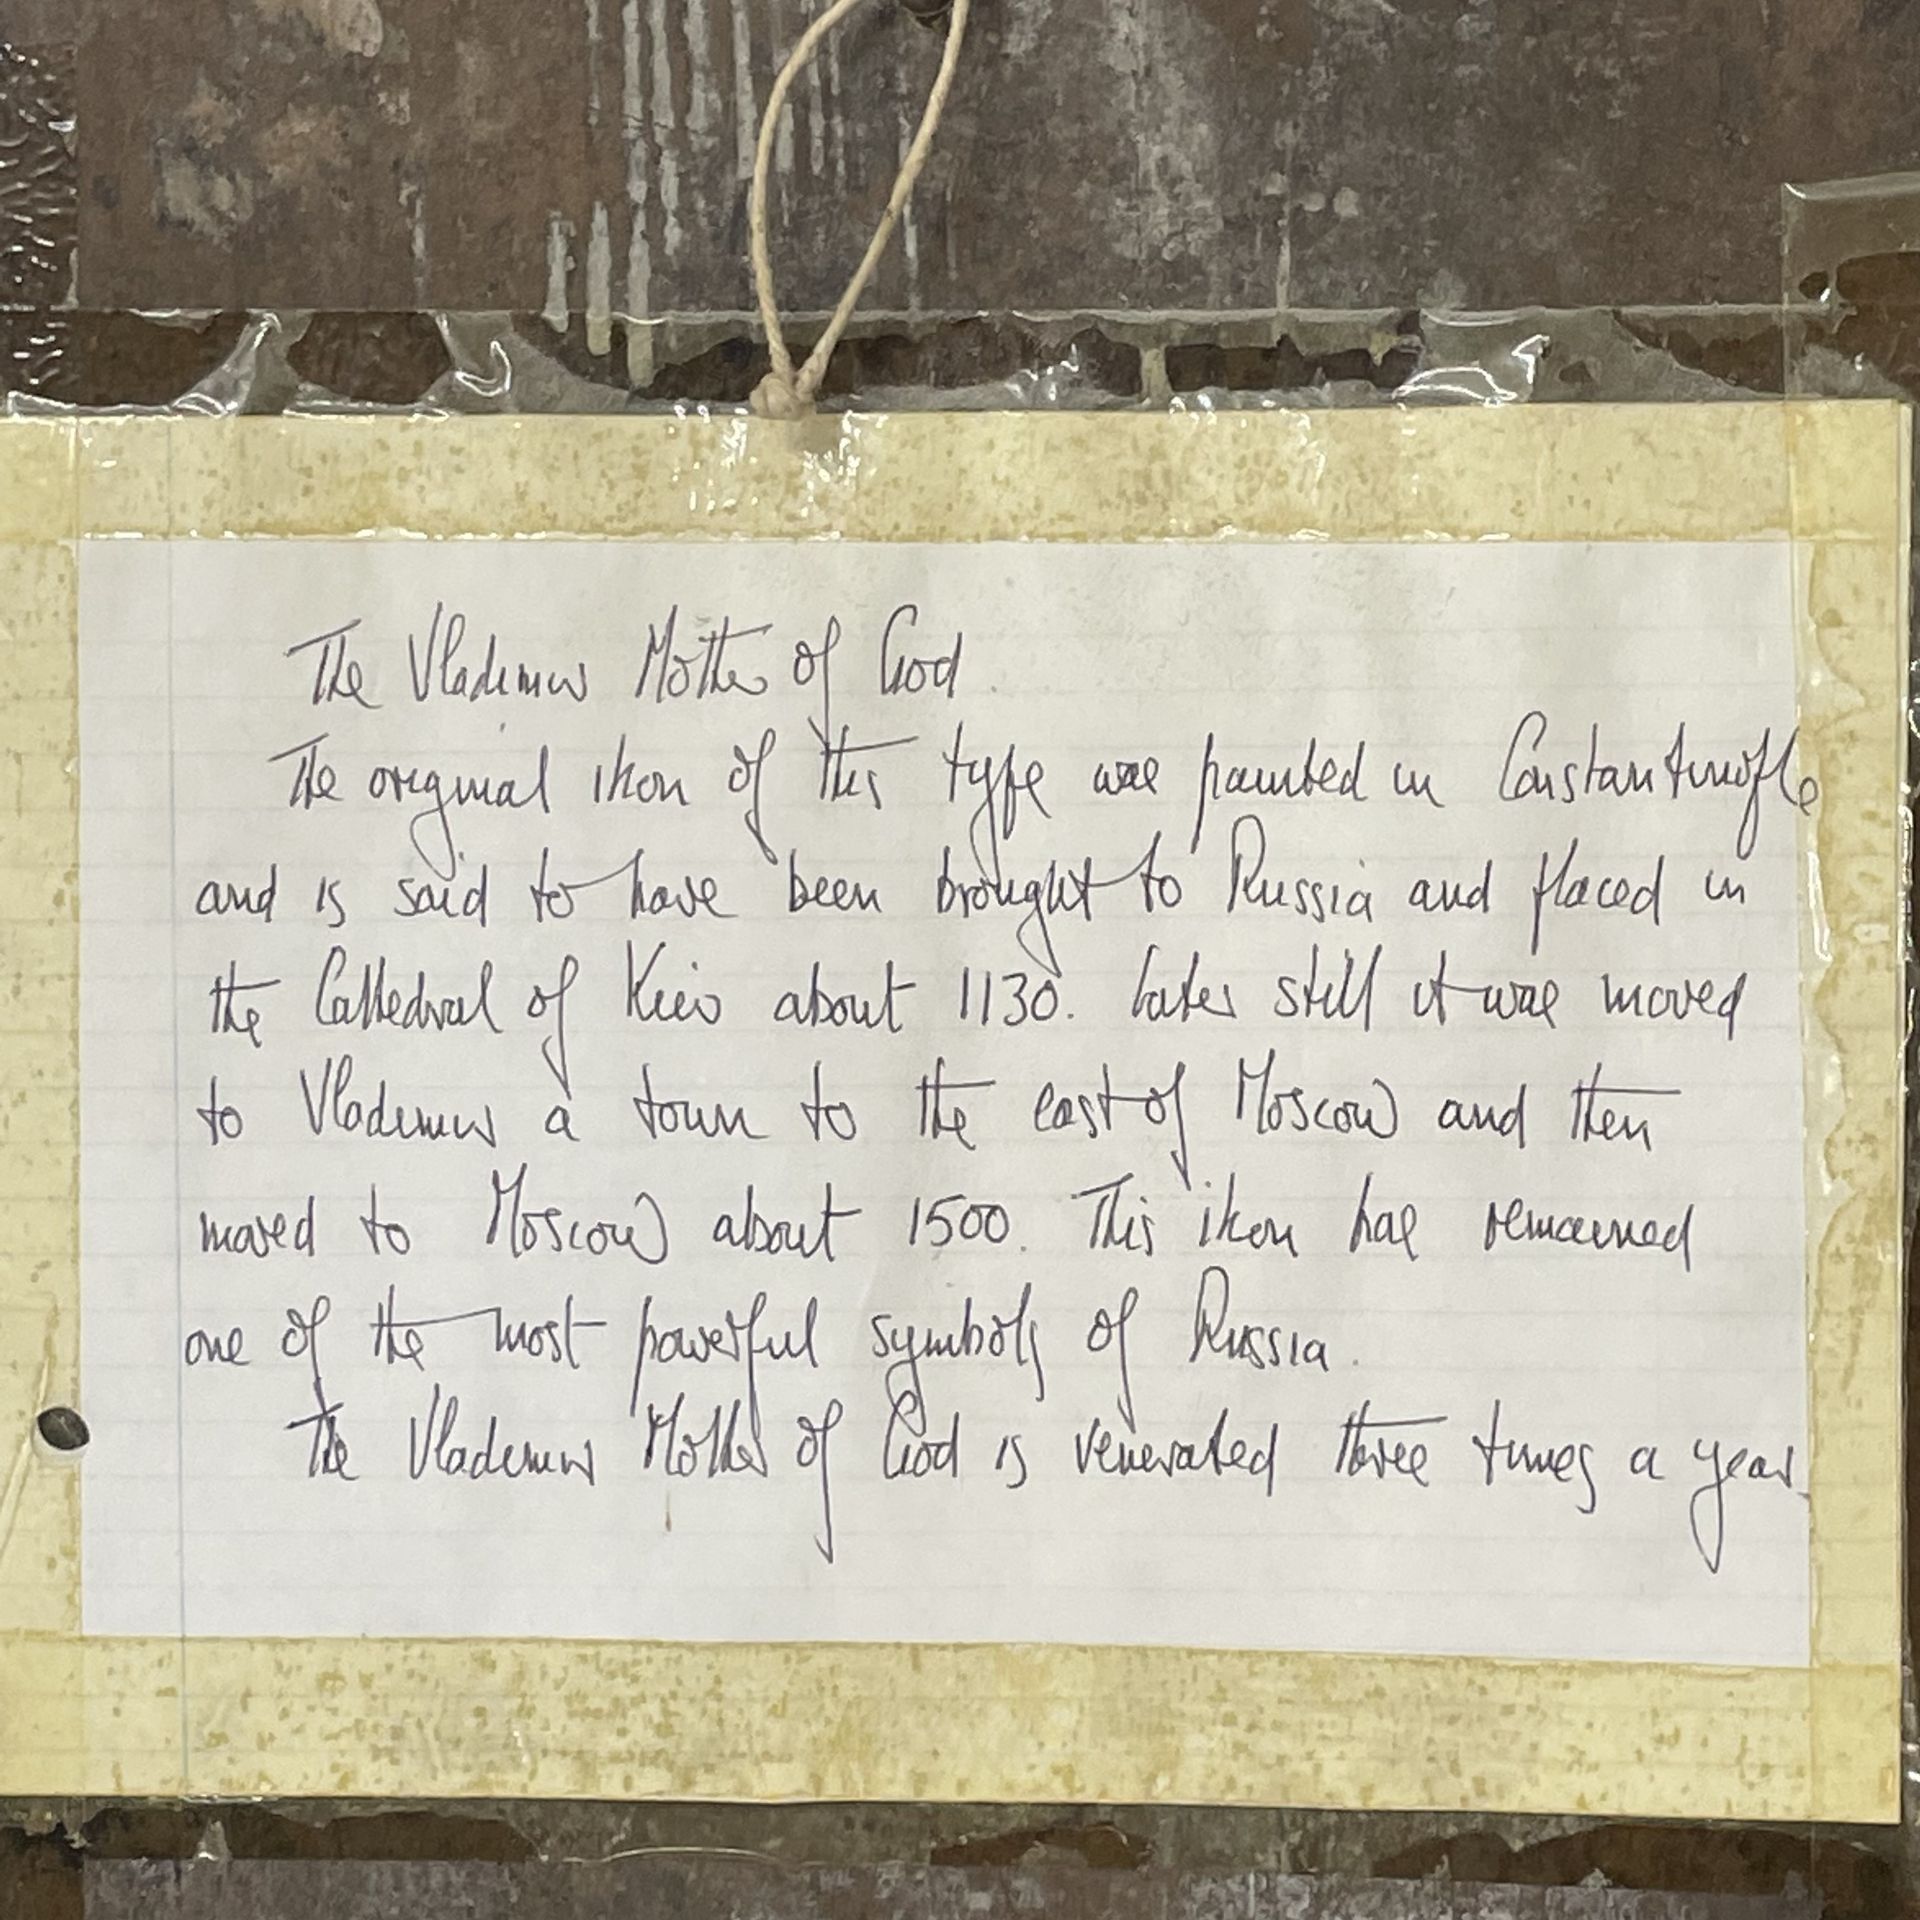 The Vladimir Mother of God.
The original ikon of this type was painted in Constantinople
and is said to have been brought to Russia and placed in
the Cathedral of Kiev about 1130. Later still it was moved
to Vladimir a town to the east of Moscow and then
moved to Moscow about 1500. This ikon has remained
one of the most powerful symbols of Russia.
The Vladimir Mother of God is venerated three times a year.